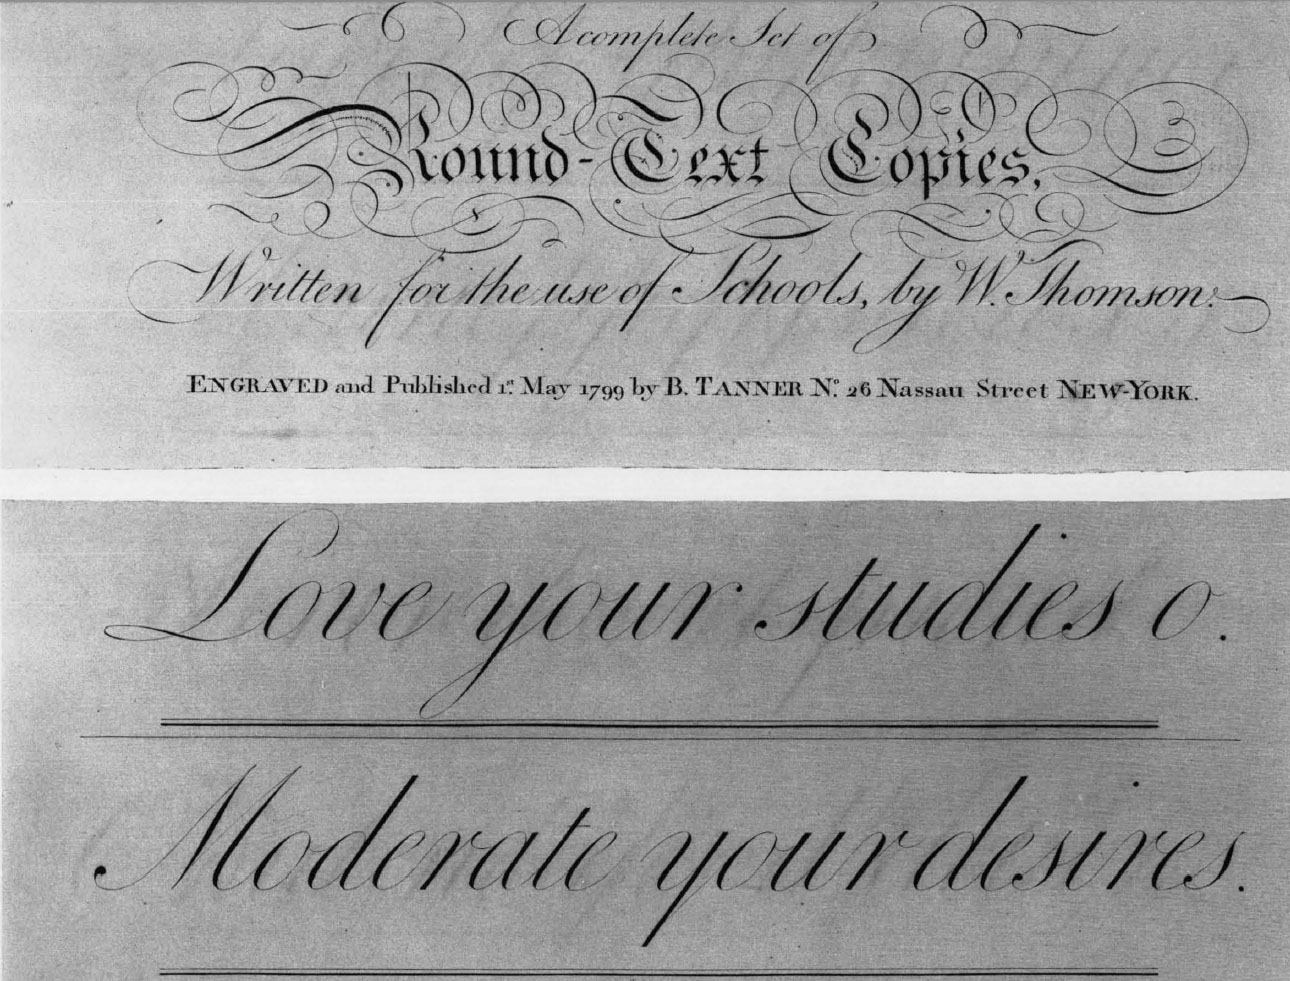 A complete Set of
Round-Text Copies,
Written for the use of Schools, by W. Thomson.
ENGRAVED and Published 1st. May 1799 by B. TANNER No. 26 Nassau Street NEW-YORK.
Love your studies o.
Moderate your desires.